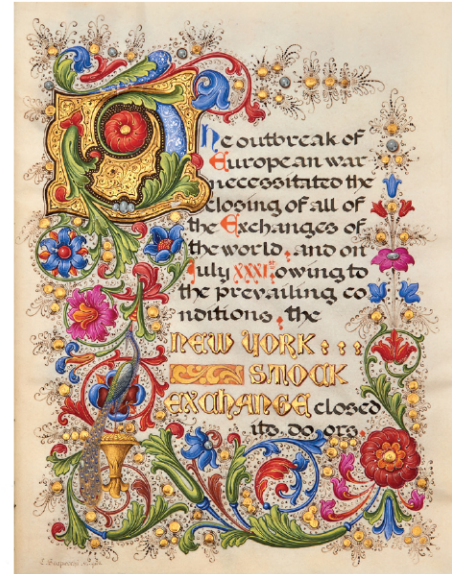 The outbreak of
European war
necessitated the
closing of all of
the Exchanges of
the world, and on
July XXXI, owing to
the prevailing co
nditions, the
NEW YORK : : :
STOCK
EXCHANGE closed
its do ors